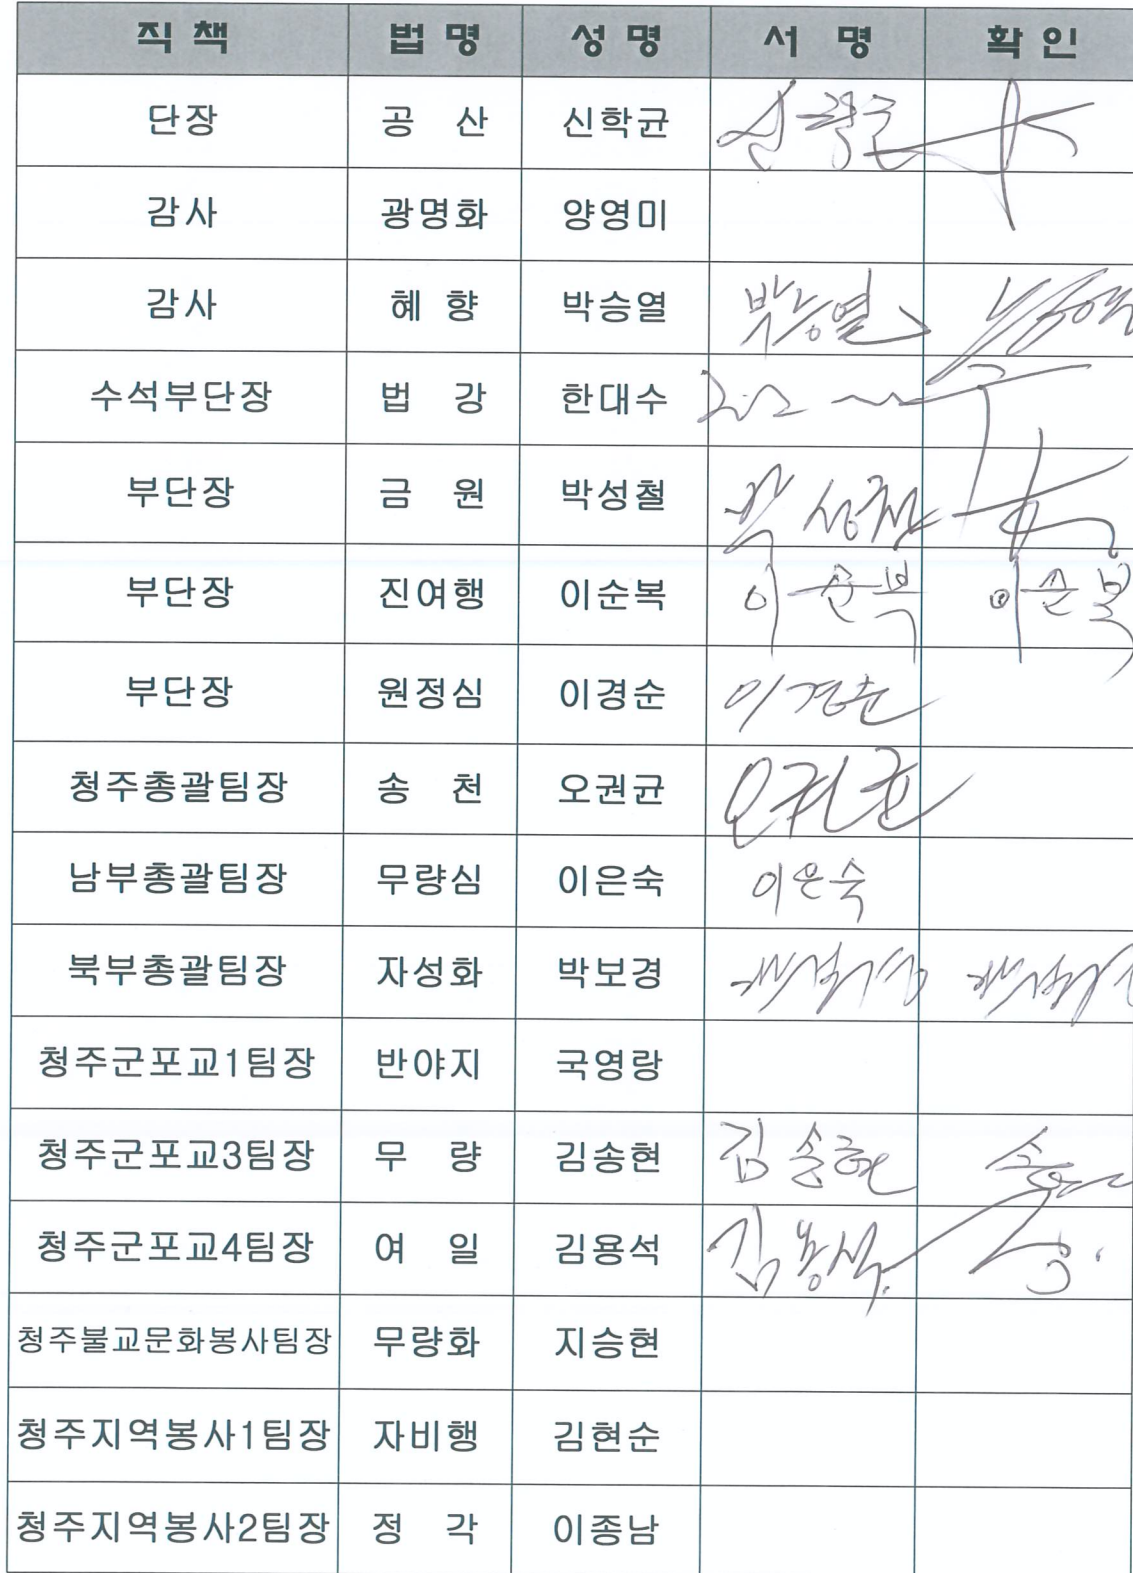 직책 법명 성명 서명 확인
단장 공 산 신학균 신학균
감사 광명화 양영미
감사 혜 향 박승열 박승열
수석부단장 법 강 한대수
부단장 금 원 박성철 박성철
부단장 진여행 이순복 이순복 이순복
부단장 원정심 이경순 이경순
청주총괄팀장 송 천 오권균 오권균
남부총괄팀장 무량심 이은숙 이은숙
북부총괄팀장 자성화 박보경
청주군포교1팀장 반야지 국영랑
청주군포교3팀장 무 량 김송현 김송현
청주군포교4팀장 여 일 김용석 김용석
청주불교문화봉사팀장 무량화 지승현
청주지역봉사1팀장 자비행 김현순
청주지역봉사2팀장 정 각 이종남